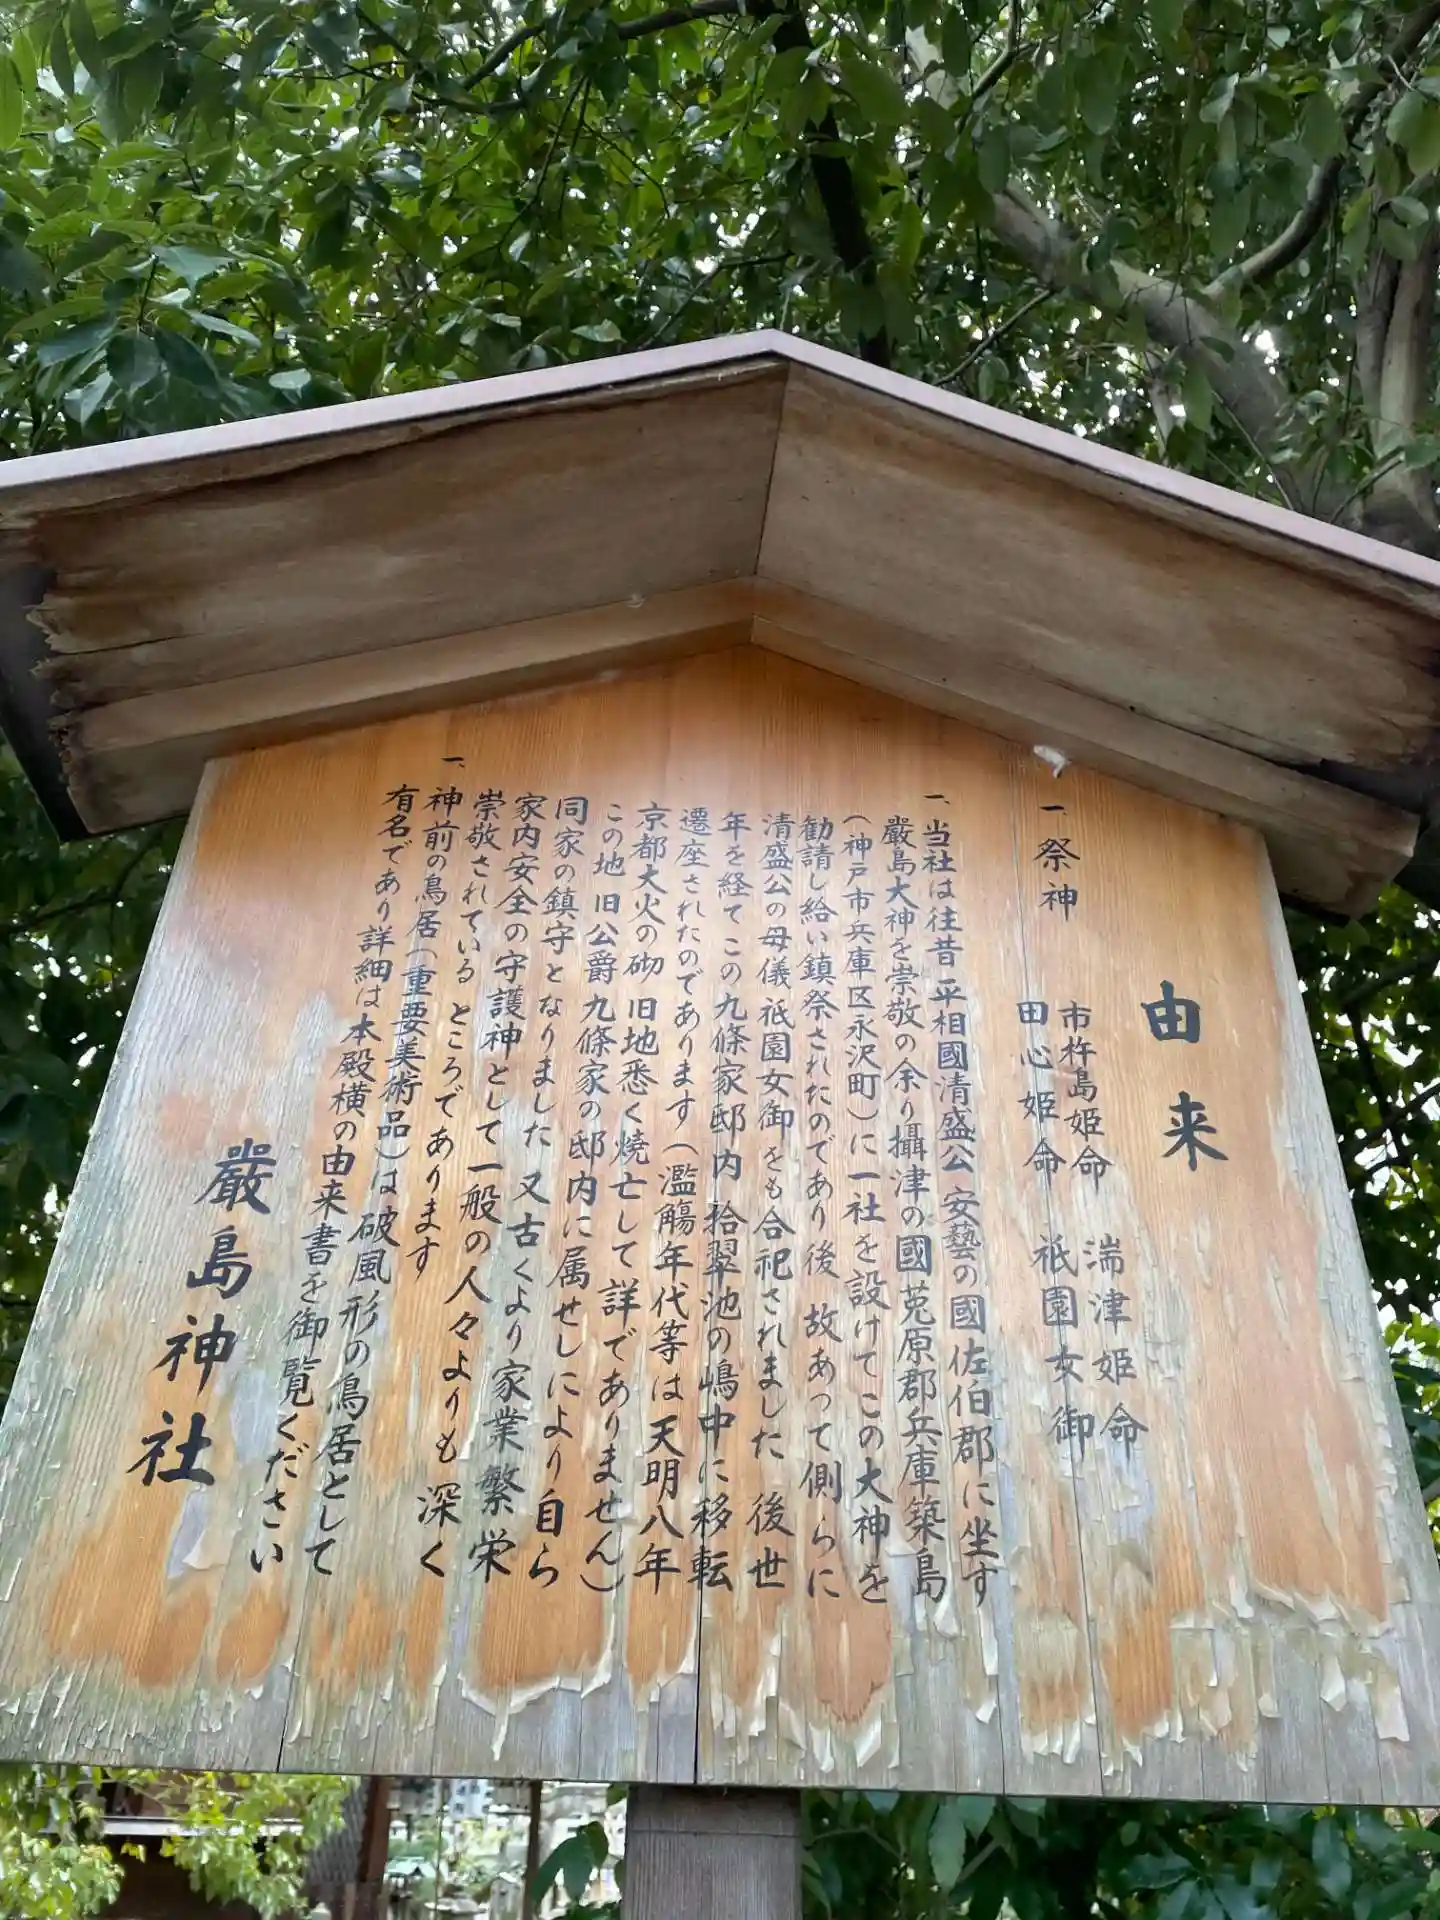 由来
一、祭神
市杵島姫命 湍津姫命
田心姫命 祇園女御
一、当社は往昔平相國清盛公安藝の國佐伯郡に坐す
嚴島大神を崇敬の余り攝津の國菟原郡兵庫築島
(神戸市兵庫区永沢町)に一社を設けてこの大神を
勧請し給い鎮祭されたのであり後故あって側らに
清盛公の母儀祇園女御をも合祀されました後世
年を経てこの九條家邸内拾翠池の嶋中に移転
遷座されたのであります(濫觴年代等は天明八年
京都大火の砌旧地悉く焼亡して詳でありません)
この地旧公爵九條家の邸内に属せしにより自ら
同家の鎮守となりました又古くより家業繁栄
家内安全の守護神として一般の人々よりも深く
崇敬されているところであります
一、神前の鳥居(重要美術品)は破風形の鳥居として
有名であり詳細は本殿横の由来書を御覧ください
嚴島神社